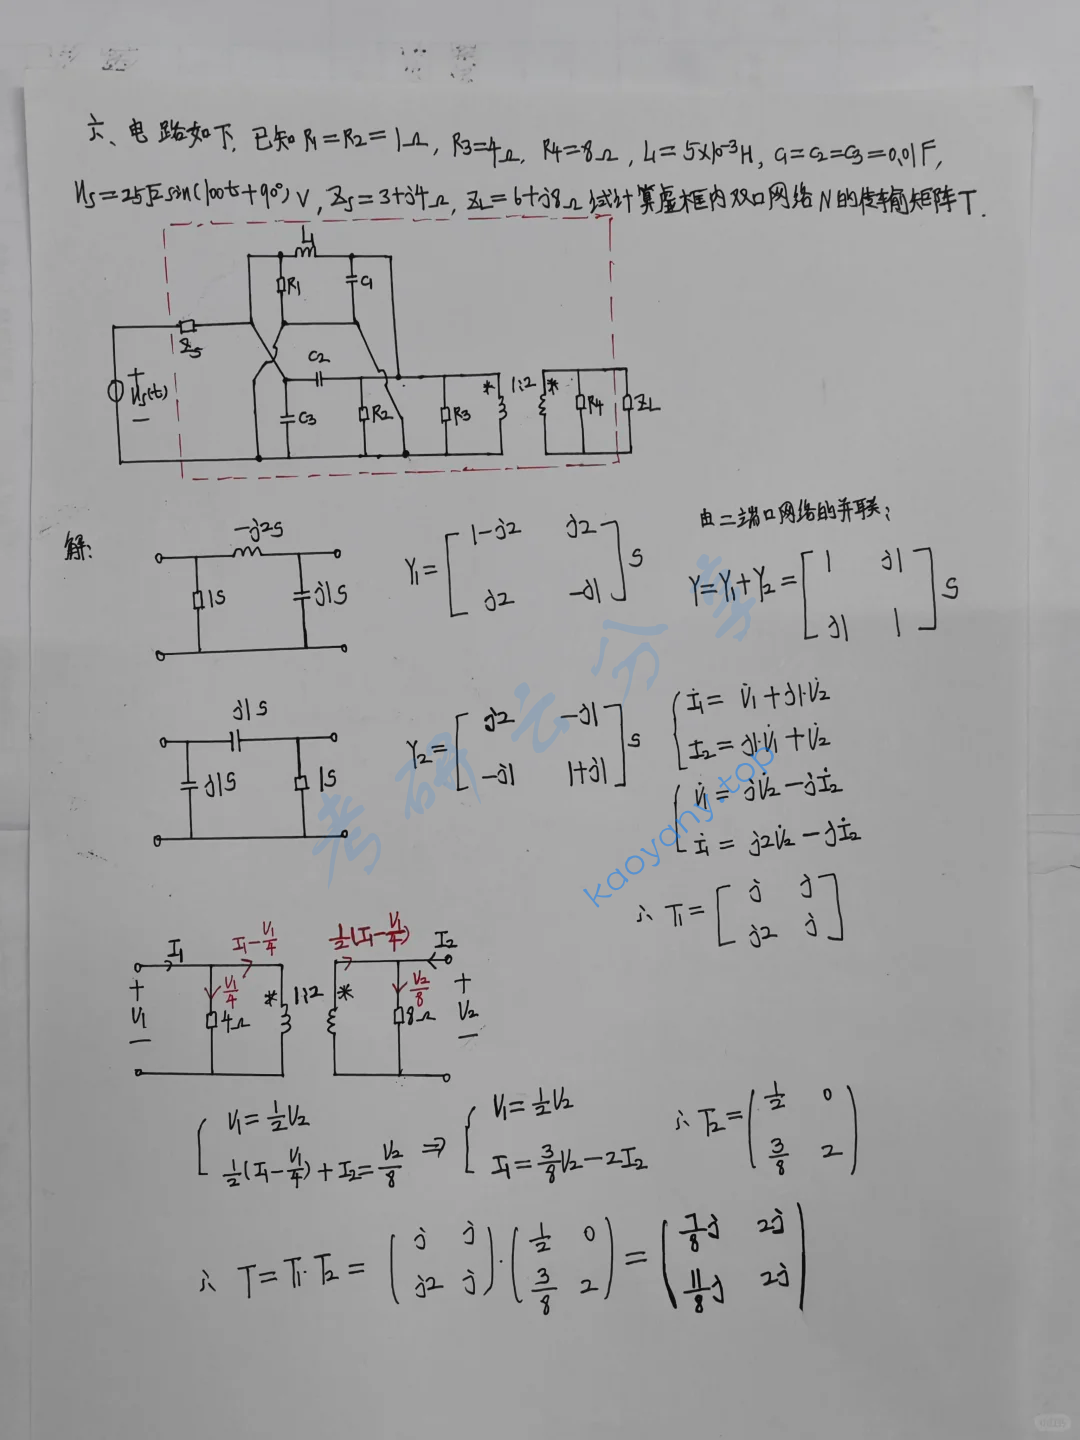 六、电路如下,已知R1=R2=1Ω, R3=4Ω, R4=8Ω, L1=5×10⁻³H, C1=C2=C3=0.01F,
Us=25√2sin(100t+90°)V, Zs=3+j4Ω, ZL=6+j8Ω 试计算虚框内双口网络N的传输矩阵T.
L1
R1
C1
Zs
C2
+
Us(t)
−
C3
R2
R3
*
1:2
*
R4
ZL
解:
-j2S
1S
j1S
Y1=[1-j2 j2
j2 -j1]S
由二端口网络的并联:
Y=Y1+Y2=[1 j1
j1 1]S
j1S
j1S
1S
Y2=[j2 -j1
-j1 1+j1]S
{İ1=V̇1+j1·V̇2
İ2=j1·V̇1+V̇2
{V̇1=jV̇2-jİ2
İ1=j2V̇2-jİ2
∴T1=[j j
j2 j]
I1
I1-V1/4
V1/4
+
V1
−
4Ω
*
1:2
*
1/2(I1-V1/4)
I2
V2/8
8Ω
+
V2
−
{V1=1/2V2
1/2(I1-V1/4)+I2=V2/8
⇒
{V1=1/2V2
I1=3/8V2-2I2
∴T2=(1/2 0
3/8 2)
∴T=T1·T2=(j j
j2 j)·(1/2 0
3/8 2)=(7/8j 2j
11/8j 2j)
考研云分享
kaoyany.top